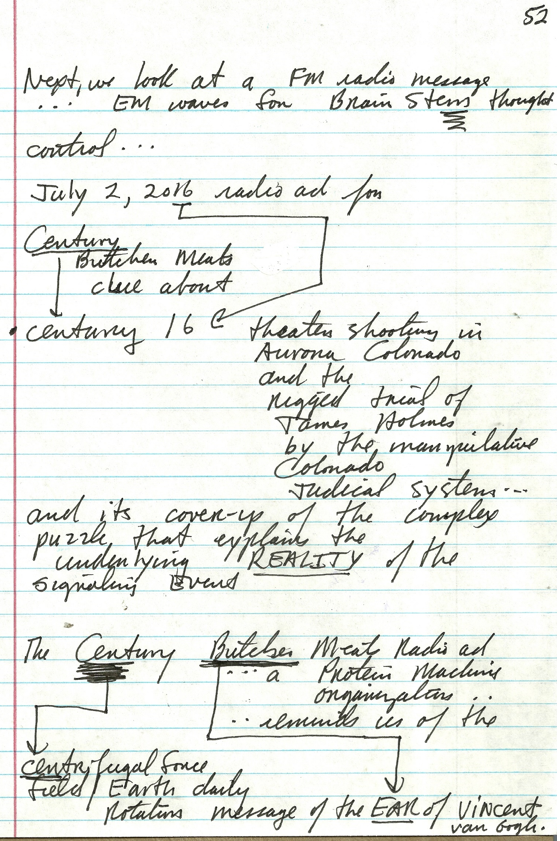 52
Next, we look at a FM radio message
... EM waves for Brain Stem thought
control...
July 2, 2016 radio ad for
Century
Butcher Meats
clue about
century 16
theater shooting in
Aurora Colorado
and the
rigged trial of
James Holmes
by the manipulative
Colorado
Judical system...
and its cover-up of the complex
puzzle, that explains the
underlying REALITY of the
signaling Event
The Century Butcher Meats Radio ad
... a Protein Machine
organization ..
.. reminds us of the
centrifugal force
field / Earth daily
Rotation message of the EAR of Vincent
van Gogh.